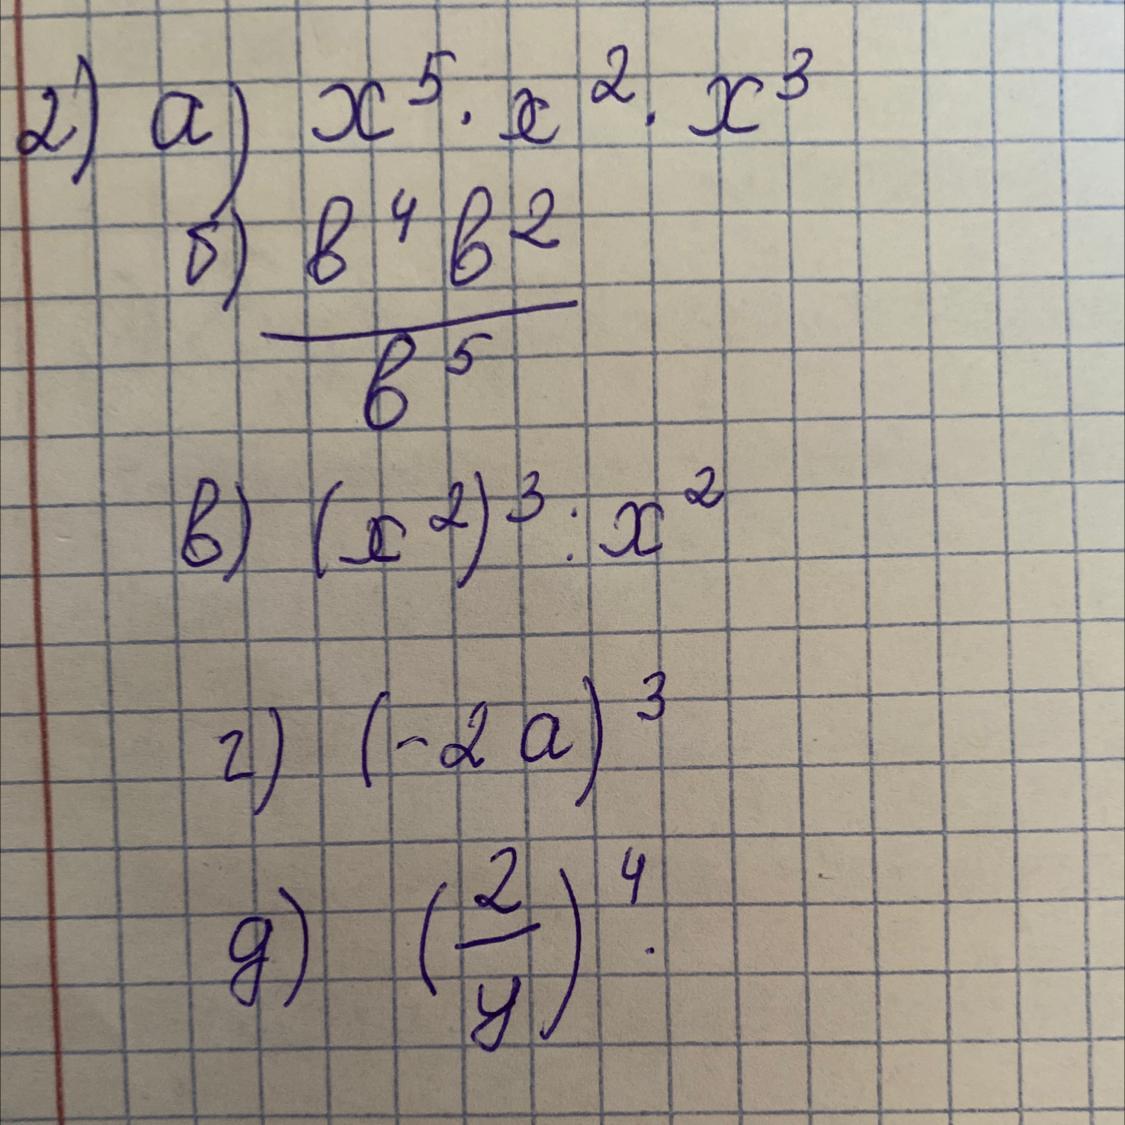 2) а) x⁵ · x² · x³
б) в⁴ в²
в⁵
в) (x²)³ : x²
г) (-2a)³
д) (2
y)⁴ .